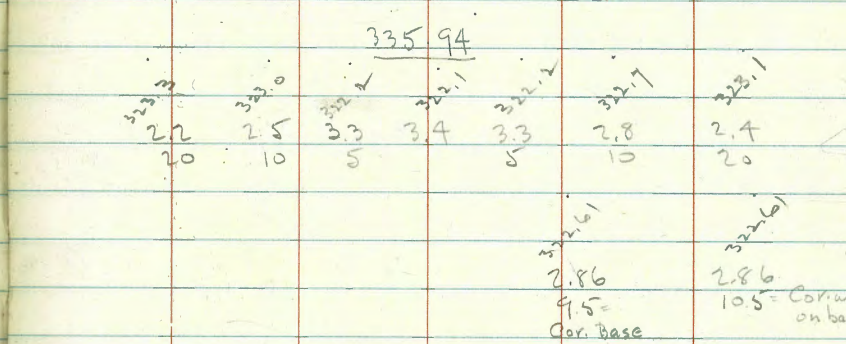 335.94
323.3 323.0 322.2 322.1 322.2 322.7 323.1
2.2 2.5 3.3 3.4 3.3 2.8 2.4
20 10 5 5 10 20
322.61 322.61
2.86 2.86
9.5= 10.5= Cor.
Cor. Base on